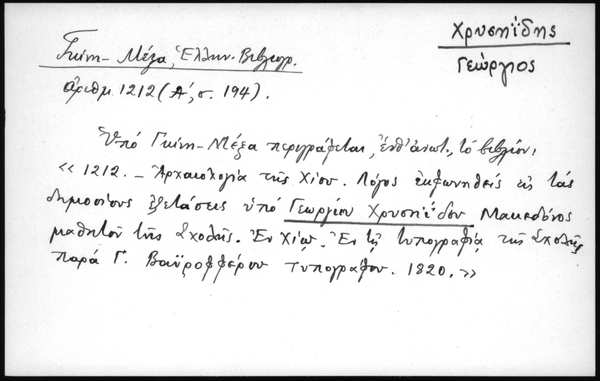 Χρυσηΐδης
Γεώργιος
Γκίνη-Μέξα, Ἑλλην. Βιβλιογρ.
ἀριθμ. 1212 (Α΄, σ. 194).
Ὑπό Γκίνη-Μέξα περιγράφεται, ἔνθ' ἀνωτ., τό βιβλίον:
« 1212. – Ἀρχαιολογία τῆς Χίου. Λόγος ἐκφωνηθείς εἰς τάς
δημοσίους ἐξετάσεις ὑπό Γεωργίου Χρυσηΐδου Μακεδόνος
μαθητοῦ τῆς Σχολῆς. Ἐν Χίῳ. Ἐν τῇ τυπογραφίᾳ τῆς Σχολῆς
παρά Γ. Βαϋροφφέρου τυπογράφου. 1820. »